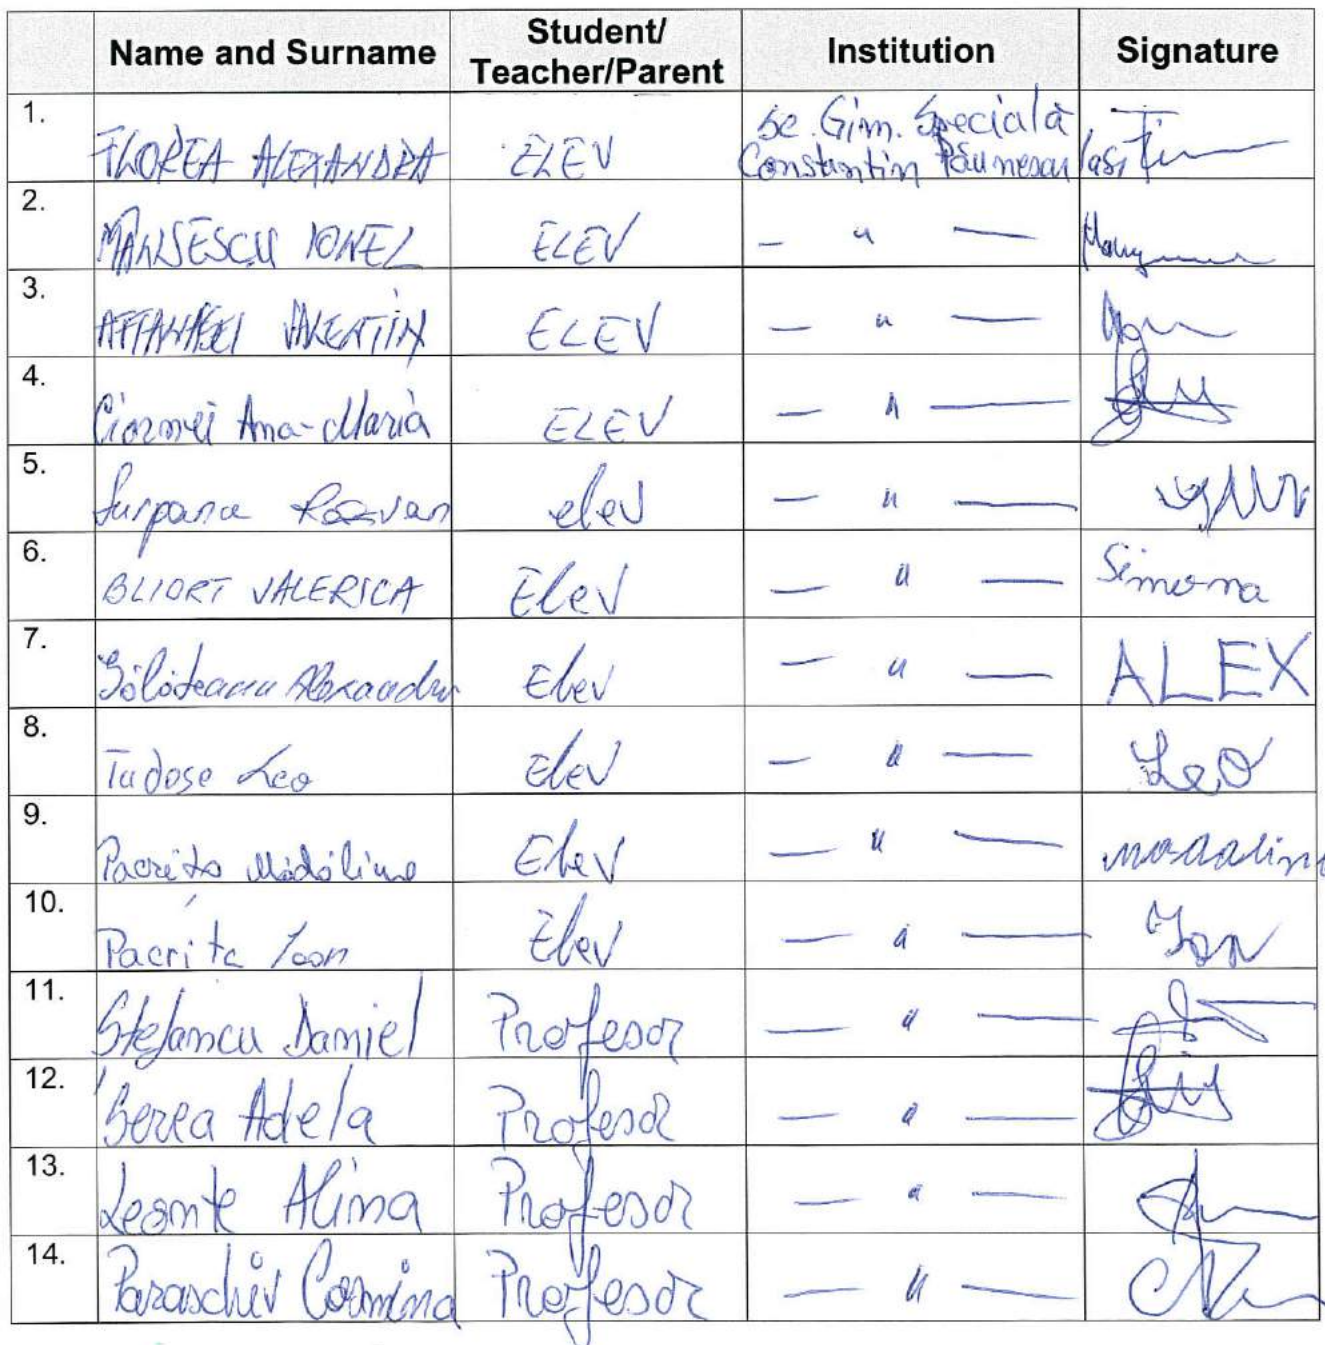 Name and Surname Student/Teacher/Parent Institution Signature
1. FLOREA ALEXANDRA ELEV Sc. Gim. Specială
Constantin Păunescu Iași
2. MANSESCU IONEL ELEV — " —
3. AFTANASEI VALENTIN ELEV — " —
4. Ciornei Ana-Maria ELEV — " —
5. Surpana Razvan elev — " —
6. BLIORT VALERICA Elev — " — Simona
7. Alexandru Elev — " — ALEX
8. Tudose Leo Elev — " — Leo
9. Pacrita Mădălina Elev — " — Madalina
10. Pacrita Ioan Elev — " — Ion
11. Stefancu Daniel Profesor — " —
12. Berea Adela Profesor — " —
13. Leonte Alina Profesor — " —
14. Paraschiv Cosmina Profesor — " —